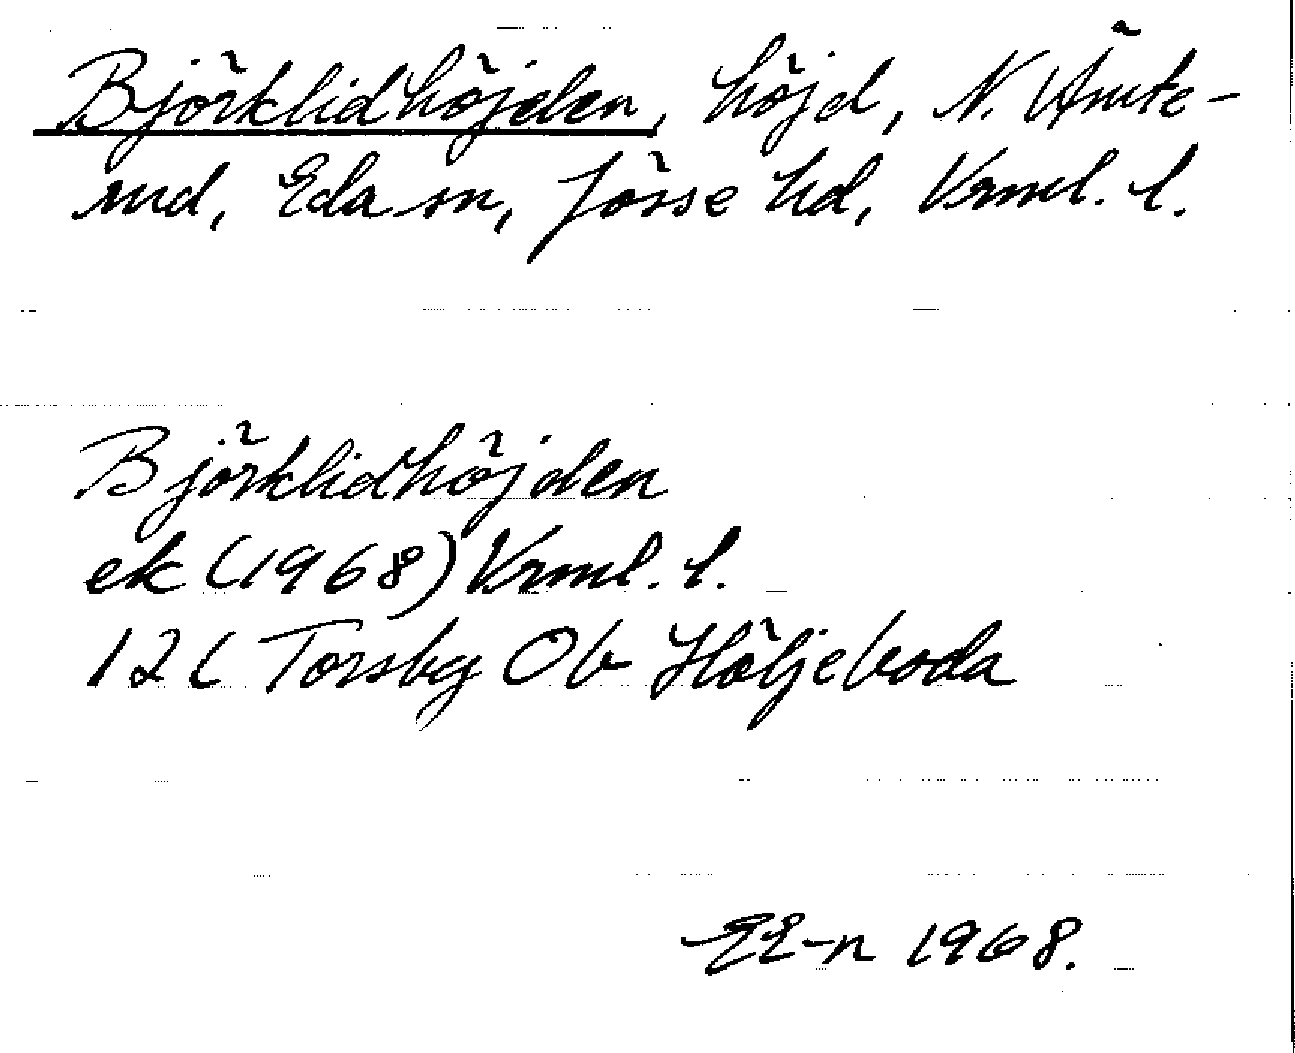 Björklidhöjden, höjd, N. Ämte-
rud, Eda sn, Jösse hd, Vrml. l.
Björklidhöjden
ek (1968) Vrml. l.
12 C Torsby Ob Höljeboda
EE-n 1968.